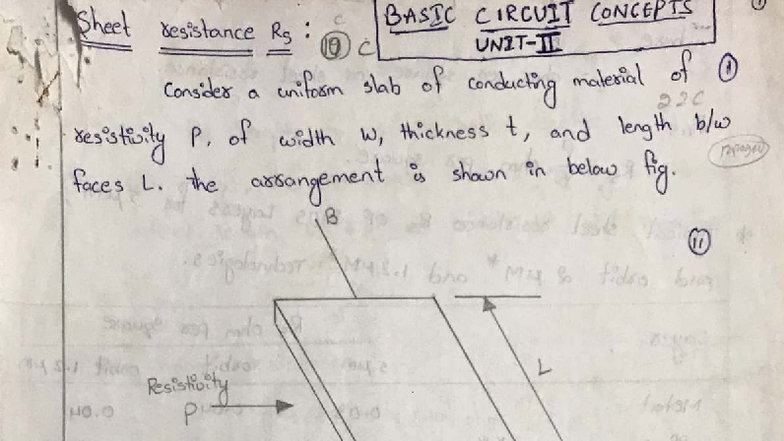 BASIC CIRCUIT CONCEPTS
UNIT-II
Sheet resistance Rs :
19 C
Consider a uniform slab of conducting material of
22C
resistivity ρ, of width W, thickness t, and length b/w
faces L. the arrangement is shown in below fig.
11
B
L
Resistivity
ρ